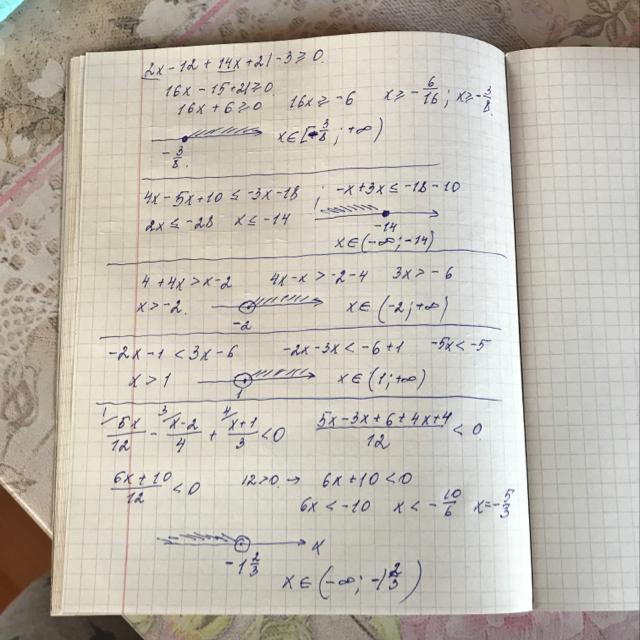 2x-12+14x+21-3≥0.
16x-15+21≥0
16x+6≥0 16x≥-6 x≥-6/16; x≥-3/8.
-3/8. x∈[-3/8; +∞)
4x-5x+10≤-3x-18 ; -x+3x≤-18-10
2x≤-28 x≤-14
-14
x∈(-∞;-14)
4+4x>x-2 4x-x>-2-4 3x>-6
x>-2. -2 x∈(-2;+∞)
-2x-1<3x-6 -2x-3x<-6+1 -5x<-5
x>1 1 x∈(1;+∞)
1/ 5x/12 - 3/ x-2/4 + 4/ x+1/3 <0 5x-3x+6+4x+4/12 <0
6x+10/12 <0 12>0 → 6x+10<0
6x<-10 x<-10/6 x=-5/3
x
-1 2/3
x∈(-∞; -1 2/3)